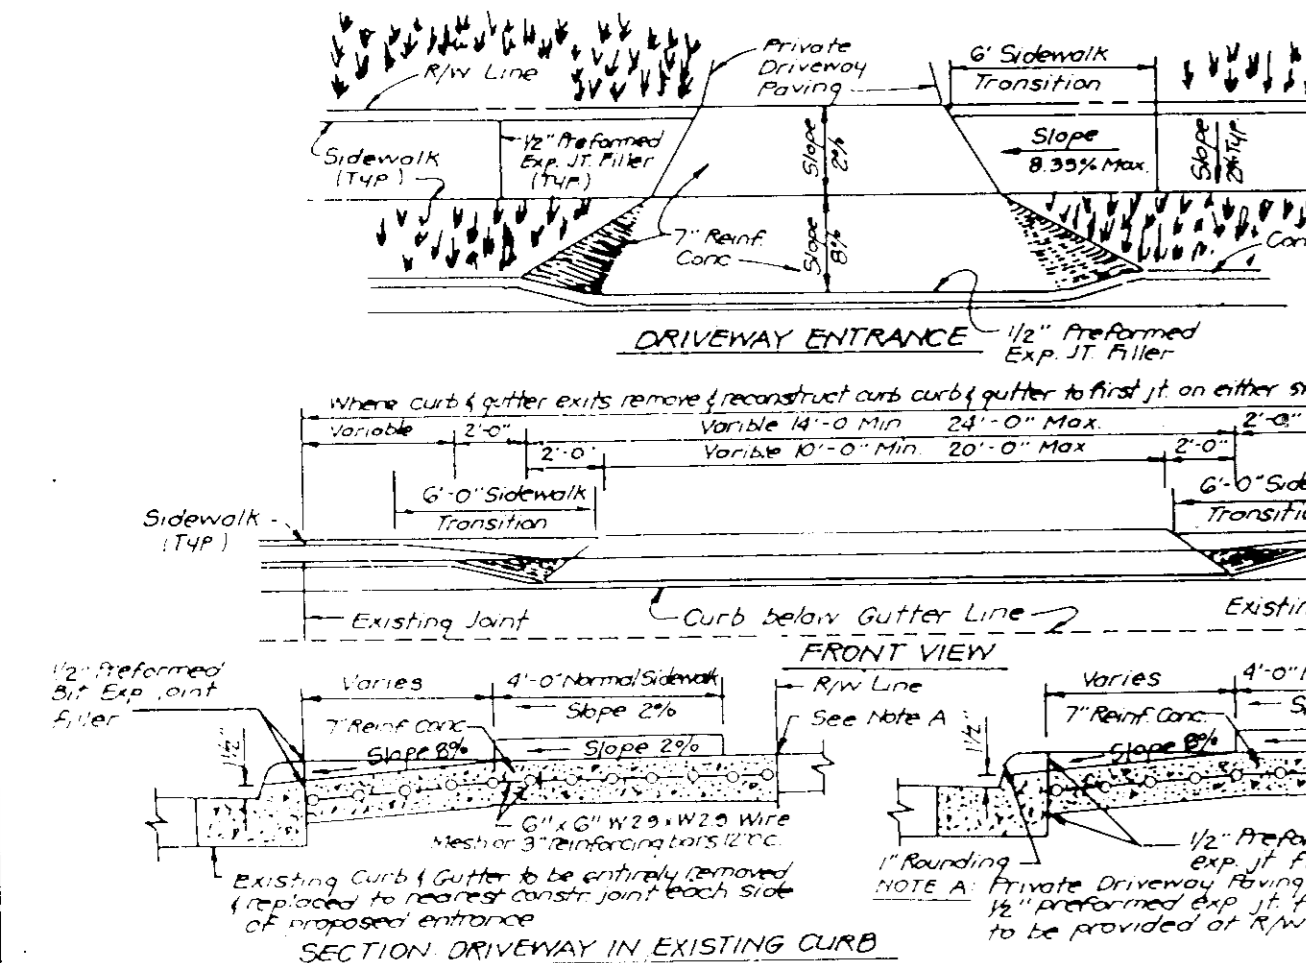 R/W Line
Private
Driveway
Paving
6' Sidewalk
Transition
Sidewalk
(TYP)
1/2" Preformed
Exp. JT. Filler
(TYP)
Slope
2%
Slope
8.33% Max.
Slope
2% Typ.
7" Reinf.
Conc
Slope
8%
DRIVEWAY ENTRANCE
1/2" Preformed
Exp. JT. Filler
Where curb & gutter exits remove & reconstruct curb curb & gutter to first jt. on either
Variable
2'-0"
Varible 14'-0 Min 24'-0" Max.
2'-0"
2'-0"
Varible 10'-0" Min. 20'-0" Max
2'-0"
6'-0" Sidewalk
Transition
6'-0" Side
Transitio
Sidewalk
(TYP)
Existing Joint
Curb below Gutter Line
Existin
FRONT VIEW
1/2" Preformed
Bit Exp joint
filler
Varies
4'-0" Normal Sidewalk
Slope 2%
R/W Line
See Note A
7" Reinf Conc
Slope 8%
Slope 2%
1 1/2"
6" x 6" W2.9 x W2.9 Wire
Mesh or 3" reinforcing bars 12" o.c.
Existing Curb & Gutter to be entirely removed
& replaced to nearest constr. joint each side
of proposed entrance
SECTION DRIVEWAY IN EXISTING CURB
Varies
4'-0"
7" Reinf Conc.
Slope 8%
1 1/2"
1" Rounding
1/2" Prefor
exp. jt f
NOTE A: Private Driveway Paving
1/2" preformed exp jt. f
to be provided at R/W